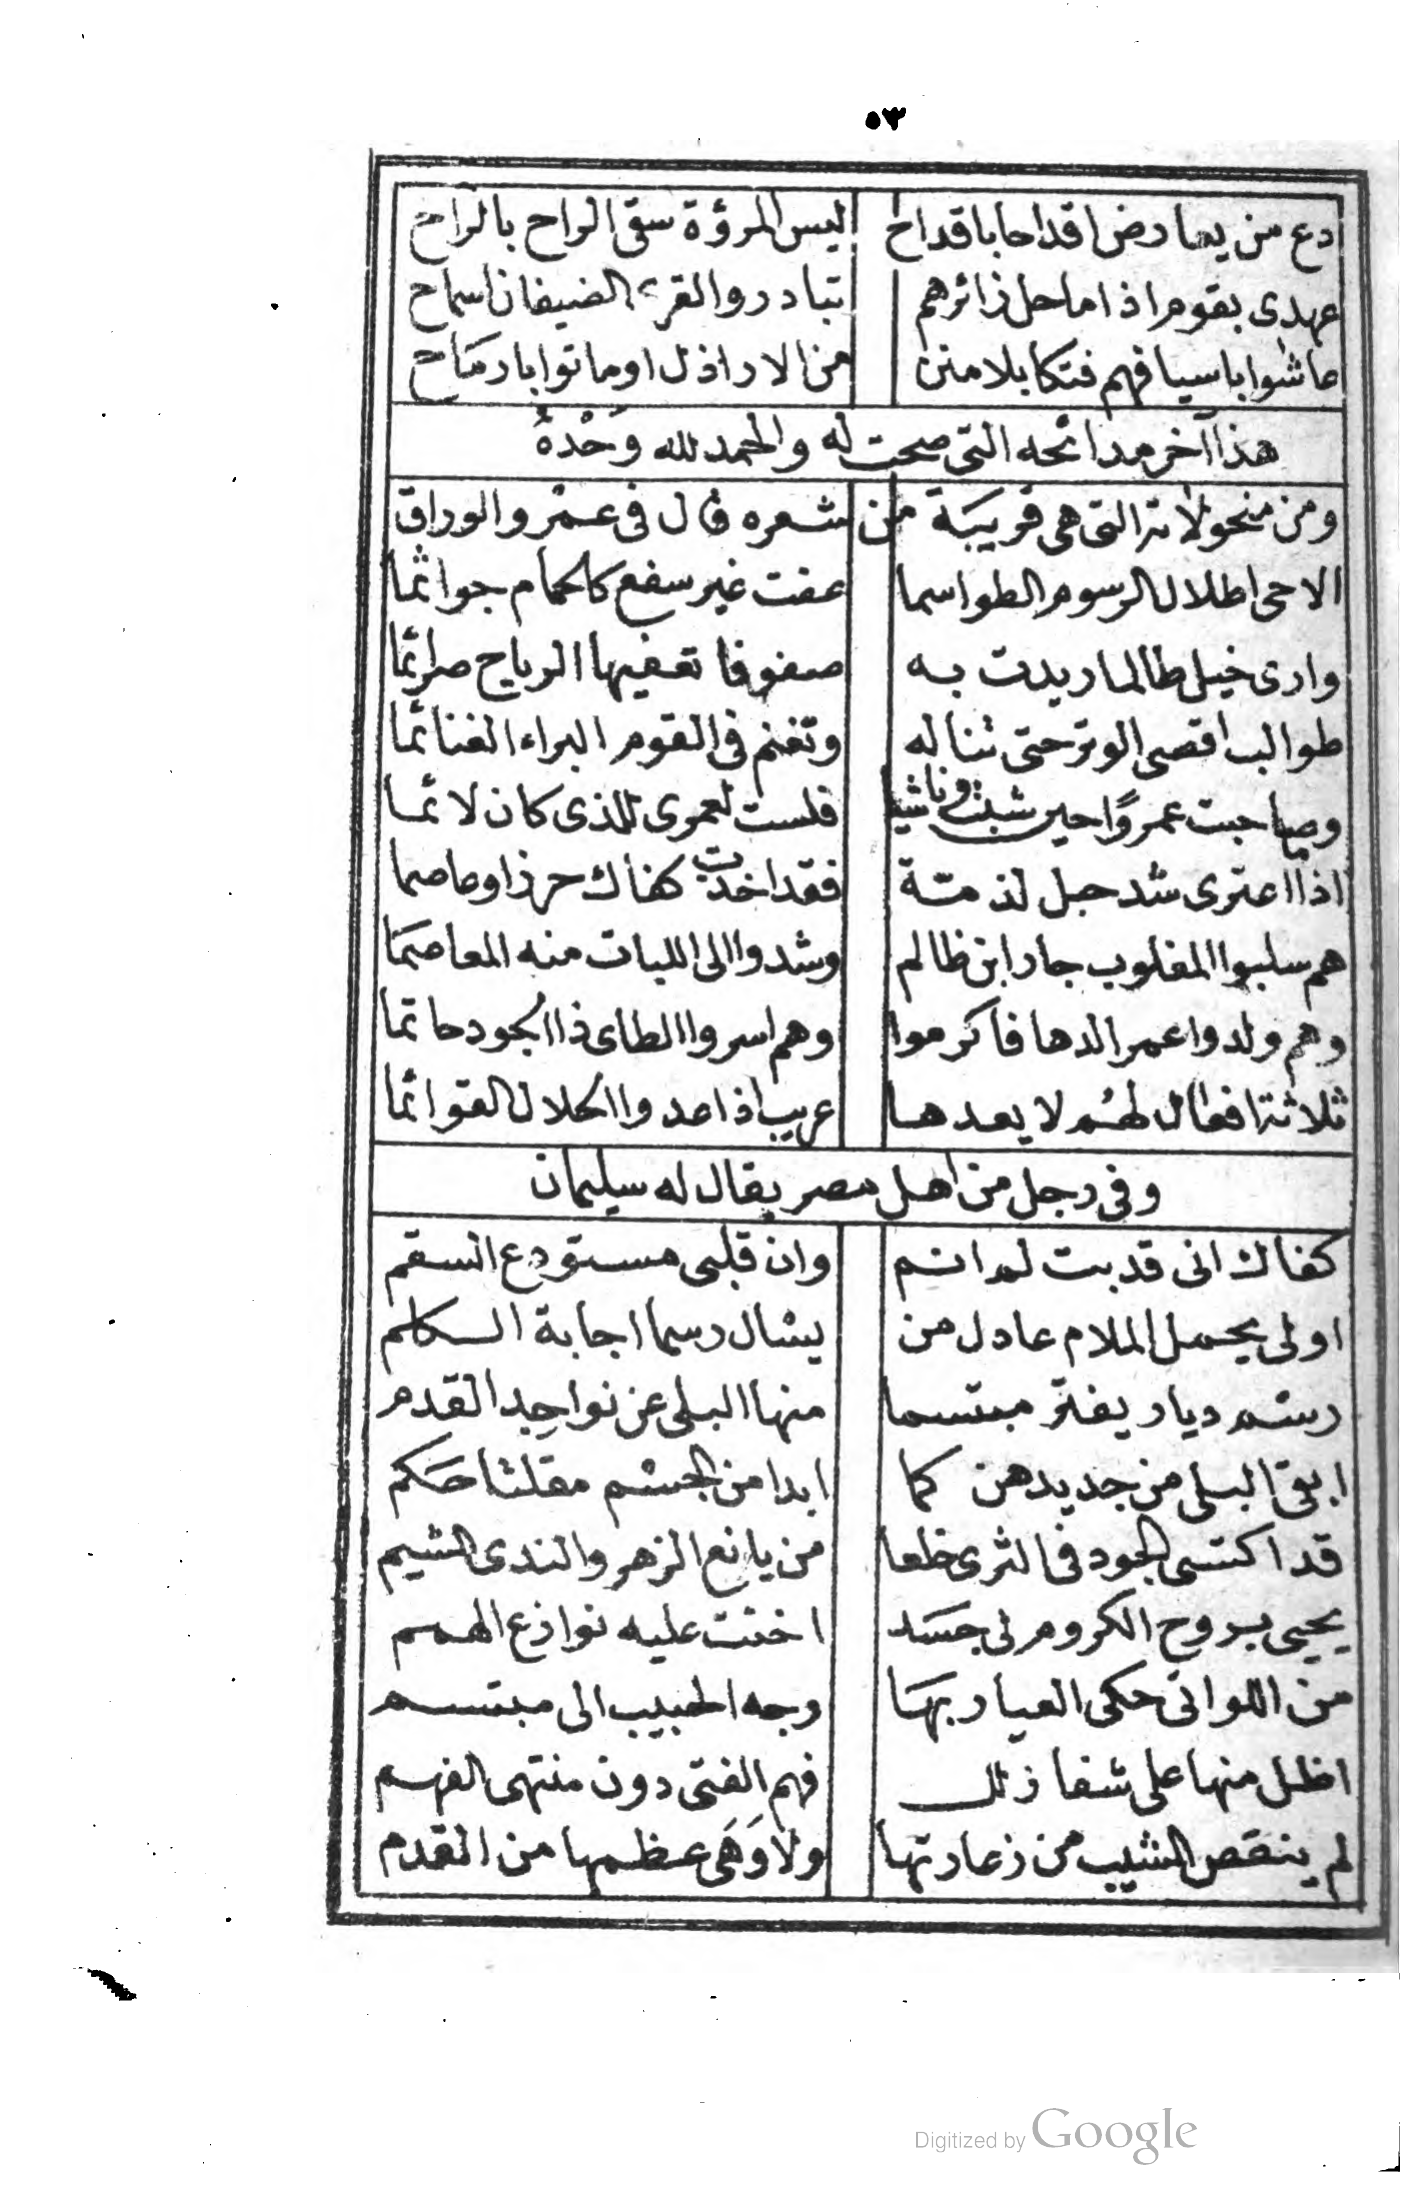 ٥٣
دع من يعارض اقداحا باقداح ليس المرؤة سقى الراح بالراح
عهدى بقوم اذا ما حل زائرهم تبادروا لقرى الضيفان اسماح
عاشوا باسيافهم فتكا بلا منن من الاراذل او ماتوا بارماح
هذا آخر مدائحه التى صحت له والحمد لله وَحْدهُ
ومن منحولاته التى هى قريبَة من شعره قال فى عمْرو الوراق
الاحى اطلال الرسوم الطواسما عفت غير سفع كالحمام جواثما
وارى خيل طالما ريدت به صفوفا تعفيها الرياح صرائما
طوالب اقصى الوتر حتى تناله وتغنم فى القوم البراء الغنائما
وصاحبت عمروًا حين شبت وناشيا فلست لعمرى للذى كان لائما
اذا اعترى شد حبل لذمتة فقد اخذت كفاك حرزا وعاصما
هم سلبوا المغلوب جار ابن ظالم وشدوا الى اللبات منه المعاصمَا
وهم ولدوا عمرا لدها فاكرموا وهم اسروا الطاى ذا الجود حاتما
ثلاثة افعال لهُم لا يعدها عريب اذا عدوا الحلال القوائما
وفى رجل من اهل مصر يقال له سليمان
كفاك انى قد بت لم انم وان قلبى مستودع السقم
اولى بحمل الملام عادل من يسال رسما اجابة الكلم
رسم ديار يفتر مبتسما منها البلى عن نواجِد القدم
ابقى البلى من جديدهن كما ابدا من الجسم مقلتا حكم
قد اكتسى الجود فى الثرى خلعا من يانع الزهر والندى الشيم
يحيى بروح الكروم لى جسَد اخنت عليه نوازع الهمم
من اللواتى حكى العيار بهَا وجه الحبيب الى مبتسم
اظل منها على شفا زلل فهم الفتى دون منتهى الفهم
لم ينقص الشيب من زعارتها ولا وَهَى عظمها من القدم
Digitized by Google